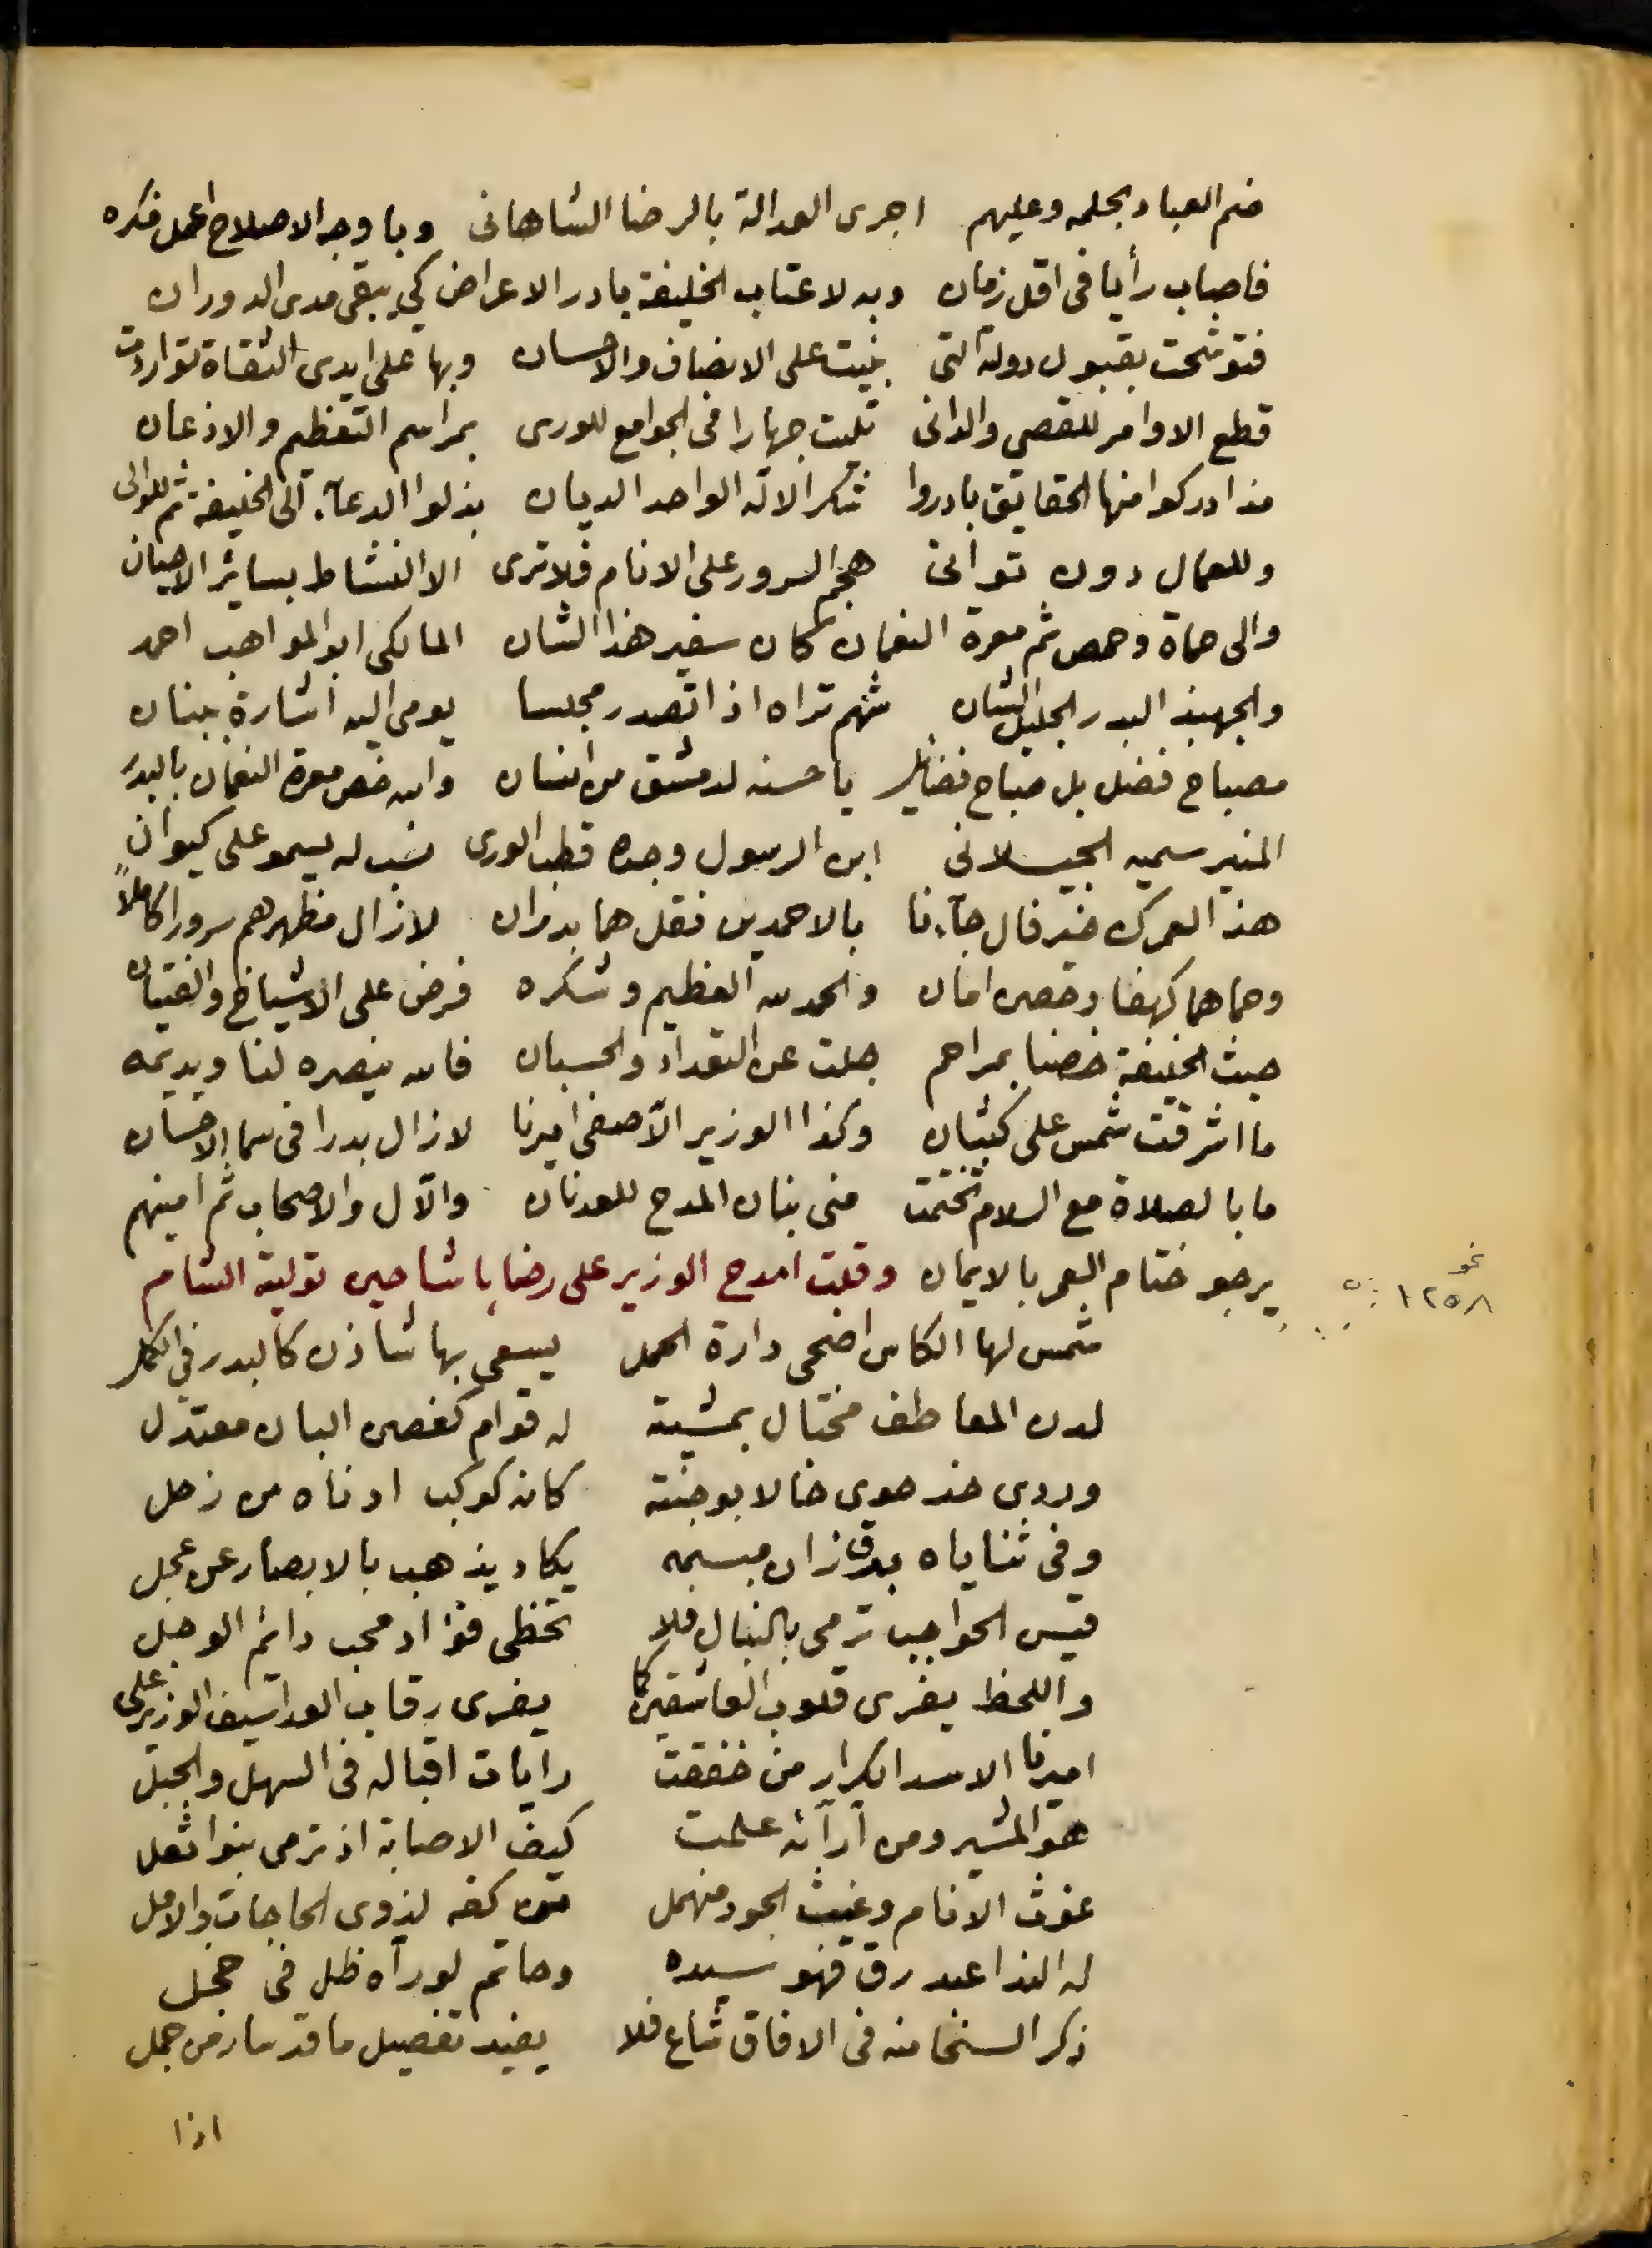 ضم العباد بحلمه وعليهم اجرى العدالة بالرضا الشاهانى وباوجه الاصلاح اعمل فكره
فاصاب رأيا فى اقل زمان وبه لاعتاب الخليفة بادر الاعراض كي يبقى مدى الدوران
فتوشحت بقبول دولة التى بنيت على الانصاف والاحسان وبها على ايدى الثقاة تواردت
قطع الاوامر للقصي والدانى تليت جهارا فى الجوامع للورى بمراسم التعظيم والاذعان
مذ ادركوا منها الحقايق بادروا شكرا لاله الواحد الديان بذلوا الدعآء الى الخليفة ثم للوالى
وللعمال دون توانى هجم السرور على الانام فلا ترى الا النشاط بسائر الاحيان
والى حماة وحمص ثم معرة النعمان كان سفير هذا الشان المالكى ابو المواهب احمد
والجهبذ البدر الجليل الشان شهم تراه اذا تصدر مجلسا يومى اليه اشارة ببنان
مصباح فضل بل صباح فضائل يا حسنه لدمشق من انسان والله خص معرة النعمان بالبدر
المنير سميه الجيلانى ابن الرسول وجده قطب الورى نسب له يسمو على كيوان
هذا لعمرك خير فال جآءنا بالاحمدين فقل هما بدران لازال مظهرهم سرورا كاملاً
وحماهما كهفا وحصن امان والحمد لله العظيم وشكره فرض على الاشياخ والفتيان
حيث الخليفة خصنا بمراحم جلت عن التعداد والحسبان فالله ينصره لنا ويديمه
ما اشرقت شمس على كثبان وكذا الوزير الآصفى اميرنا لازال بدرا فى سما الاحسان
ما بالصلاة مع السلام تختمت منى بنان المدح للعدنان والآل والاصحاب ثم امينهم
يرجو ختام العمر بالايمان وقلت امدح الوزير على رضا باشا حين تولية الشام
نحو
١٢٥٨
شمس لها الكاس اضحى دارة الحمل يسعى بها شاذن كالبدر فى الكلل
لدن المعاطف مختال بمشيته له قوام كغصن البان معتدل
وردى خد حوى خالا بوجنته كانه كوكب ادناه من زحل
وفى ثناياه برق زان مبسمه يكاد يذهب بالابصار عن عجل
قيس الحواجب ترمى بالنبال فلا تخطى فؤاد محب دائم الوجل
واللحظ يفرى قلوب العاشقين كما يفرى رقاب العدا سيف الوزير على
اميرنا الاسد الكرار من خفقت رايات اقباله فى السهل والجبل
هو المشير ومن آرآئه علمت كيف الاصابة اذ ترمى بنو اثعل
غوث الانام وغيث الجود منهمل من كفه لذوى الحاجات والامل
له الندا عبد رق فهو سيده وحاتم لو رآه ظل فى خجل
ذكر السخا منه فى الافاق شاع فلا يفيد تفصيل ما قد سار من جمل
اذا